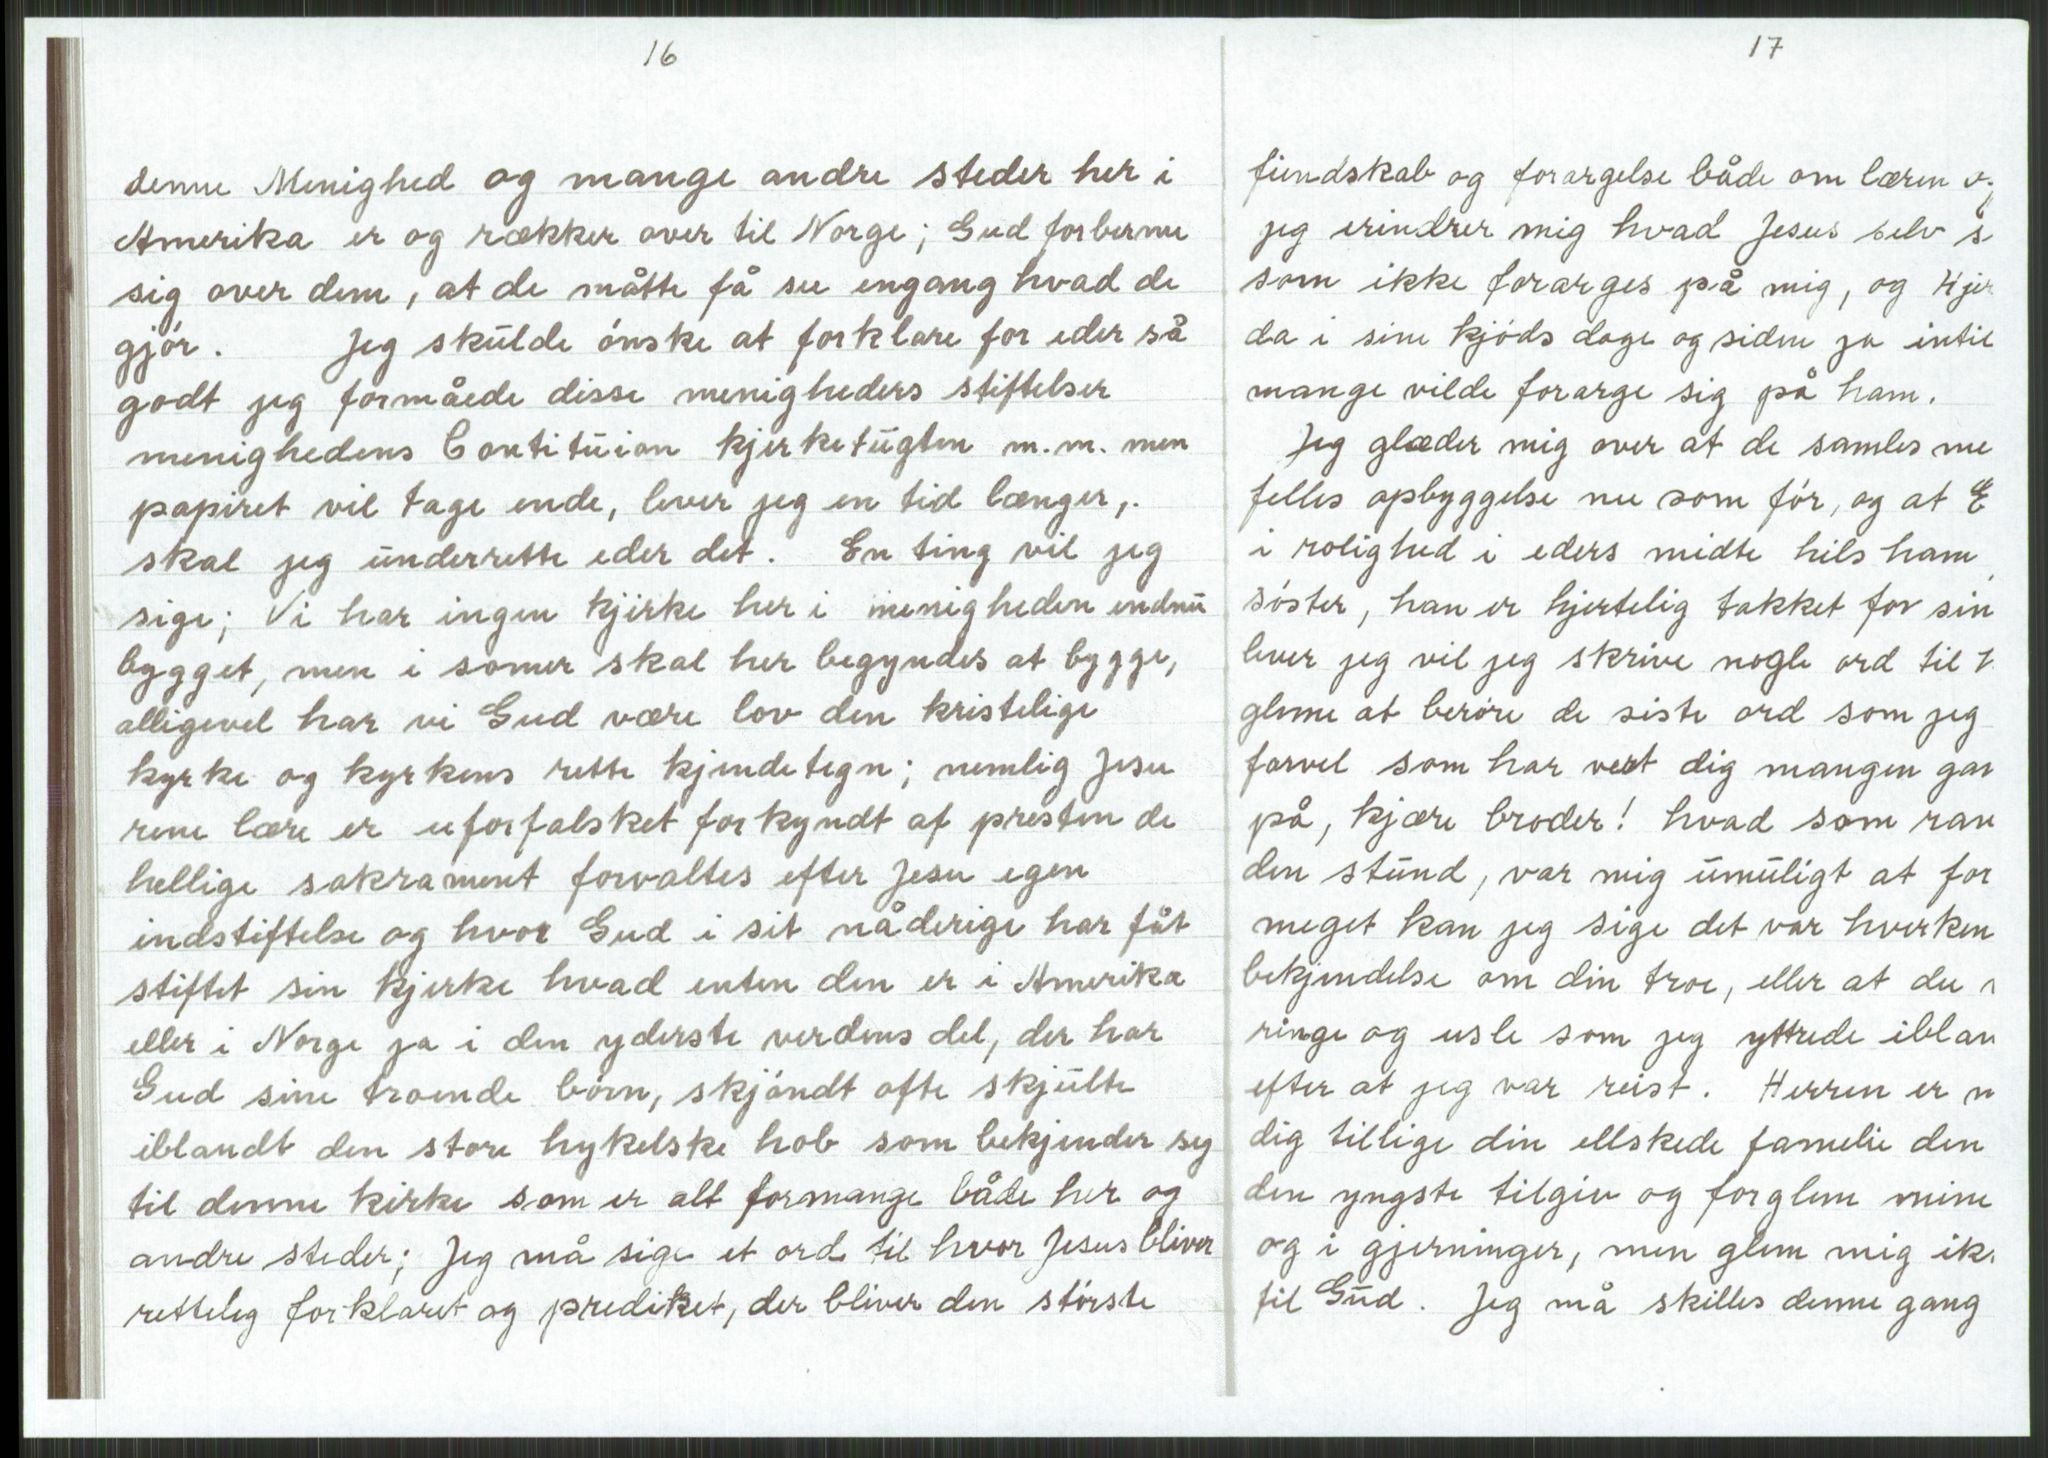 16
denne Menighed og mange andre steder her i
Amerika er og rækker over til Norge; Gud forbernu
sig over dem, at de måtte få see engang hvad de
gjór. Jeg skulde ónske at forklare for eder så
godt jeg formåede disse menigheders stiftelser
menighedens Contituion kjerketugten m.m. men
papiret vil tage ende, lever jeg en tid længer,.
skal jeg underrette eder det. En ting vil jeg
sige; Vi har ingen kjirke her i menigheden endnu
bygget, men i somer skal her begyndes at bygge,
alligevel har vi Gud være lov den kristelige
kyrke og kyrkens rette kjendetegn; nemlig Jesu
rene lære er uforfalsket forkyndt af presten de
hellige sakrament forvaltes efter Jesu egen
indstiftelse og hvor Gud i sit nåderige har fåt
stiftet sin kjerke hvad enten den er i Amerika
eller i Norge ja i den yderste verdens del, der har
Gud sine troende bórn, skjóndt ofte skjulte
iblandt den store hykelske hob som bekjender seg
til denne kirke som er alt formange både her og
andre steder; Jeg må sige et ord til hvor Jesus bliver
rettelig forklaret og prediket, der bliver den stórste
17
fiendskab og forargelse både om læren
jeg erindrer mig hvad Jesus selv s
som ikke forarges på mig, og Hjer
da i sine kjóds dage og siden ja intil
mange vilde forarge sig på ham.
Jeg glæder mig over at de samles me
felles opbyggelse nu som fór, og at E
i rolighed i eders midte hils ham
sóster, han er hjertelig takket for sin
lever jeg vil jeg skrive nogle ord til
gleme at beróre de siste ord som jeg
farvel som har vert dig mangen gan
på, kjære broder! hvad som ran
den stund, var mig umuligt at for
meget kan jeg sige det var hverken
bekjendelse om din troe, eller at du
ringe og usle som jeg yttrede iblan
efter at jeg var reist. Herren er
dig tillige din ellskede famelie den
den yngste tilgiv og forglem mine
og i gjerninger, men glem mig ik
til Gud. Jeg må skilles denne gang